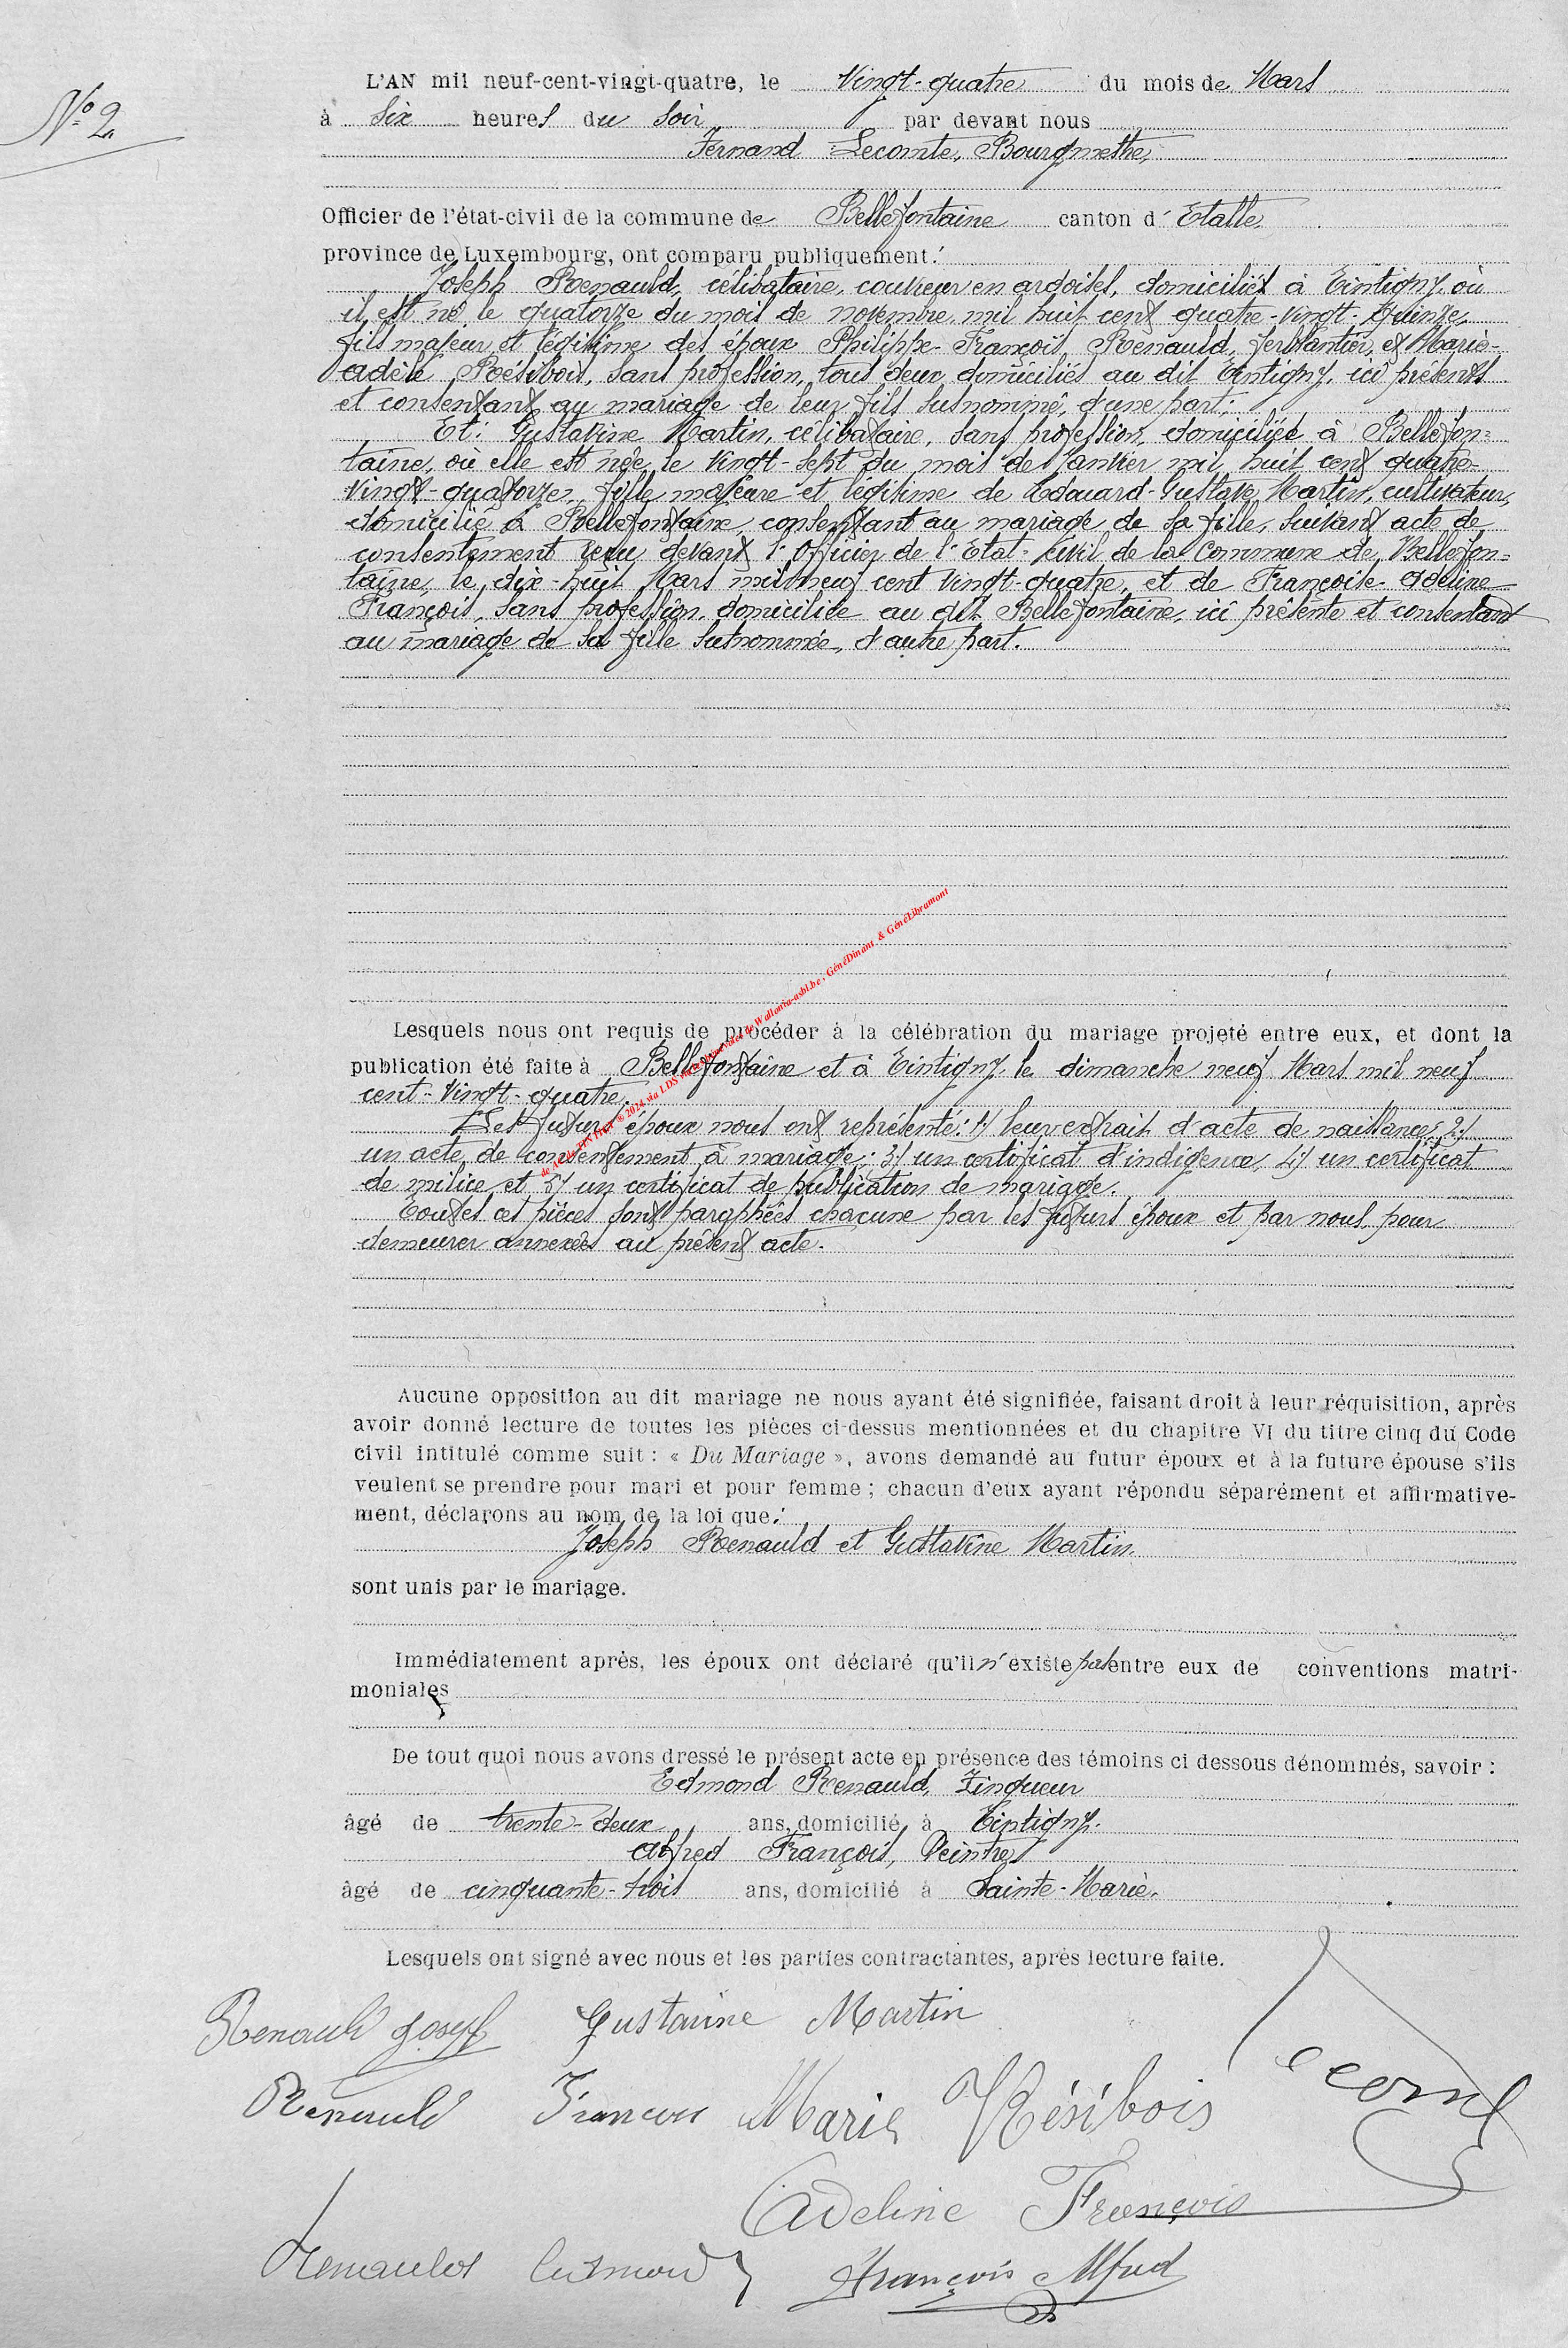 N° 2.
L'AN mil neuf-cent-vingt-quatre, le Vingt-quatre du mois de Mars
à Six heures du Soir par devant nous
Fernand Lecomte, Bourgmestre,
Officier de l'état-civil de la commune de Bellefontaine canton d' Etalle,
province de Luxembourg, ont comparu publiquement :
Joseph Renauld, célibataire, couvreur en ardoises, domicilié à Tintigny, où
il est né le quatorze du mois de novembre mil huit cent quatre-vingt-quinze,
fils majeur et légitime des époux Philippe-François Renauld, ferblantier, et Marie-
Adèle Résibois, sans profession, tous deux domiciliés au dit Tintigny, ici présents
et consentant au mariage de leur fils susnommé, d'une part;
Et: Gustavine Martin, célibataire, sans profession, domiciliée à Bellefon-
taine, où elle est née le vingt-sept du mois de Janvier mil huit cent quatre-
vingt-quatorze, fille majeure et légitime de Edouard-Gustave Martin, cultivateur,
domicilié à Bellefontaine, consentant au mariage de sa fille, suivant acte de
consentement reçu devant l'Officier de l'Etat-Civil de la Commune de Bellefon-
taine, le dix-huit Mars mil neuf cent vingt-quatre, et de Françoise-Adeline
François, sans profession, domiciliée au dit Bellefontaine, ici présente et consentant
au mariage de sa fille susnommée, d'autre part.
Lesquels nous ont requis de procéder à la célébration du mariage projeté entre eux, et dont la
publication été faite à Bellefontaine et à Tintigny, le dimanche neuf Mars mil neuf
cent-vingt-quatre.
Les futurs époux nous ont représenté: 1/ leur extrait d'acte de naissance; 2/
un acte de consentement à mariage; 3/ un certificat d'indigence, 4/ un certificat
de milice et 5/ un certificat de publication de mariage.
Toutes ces pièces sont paraphées chacune par les futurs époux et par nous pour
demeurer annexées au présent acte.
de Wallonia-asbl.be , GénéDinant & GénéLibramont
Aucune opposition au dit mariage ne nous ayant été signifiée, faisant droit à leur réquisition, après
avoir donné lecture de toutes les pièces ci-dessus mentionnées et du chapitre VI du titre cinq du Code
civil intitulé comme suit : « Du Mariage », avons demandé au futur époux et à la future épouse s'ils
veulent se prendre pour mari et pour femme ; chacun d'eux ayant répondu séparément et affirmative-
ment, déclarons au nom de la loi que :
Joseph Renauld et Gustavine Martin.
sont unis par le mariage.
Immédiatement après, les époux ont déclaré qu'il n'existe pas entre eux de conventions matri-
moniales
De tout quoi nous avons dressé le présent acte en présence des témoins ci dessous dénommés, savoir :
Edmond Renauld, Zingueur
âgé de trente-deux ans, domicilié à Tintigny.
Alfred François, Peintre
âgé de cinquante-trois ans, domicilié à Sainte-Marie.
Lesquels ont signé avec nous et les parties contractantes, après lecture faite.
Renauld Joseph Gustavine Martin
Renauld François Marie Résibois Lecomte
Adeline François
Renauld Edmond François Alfred